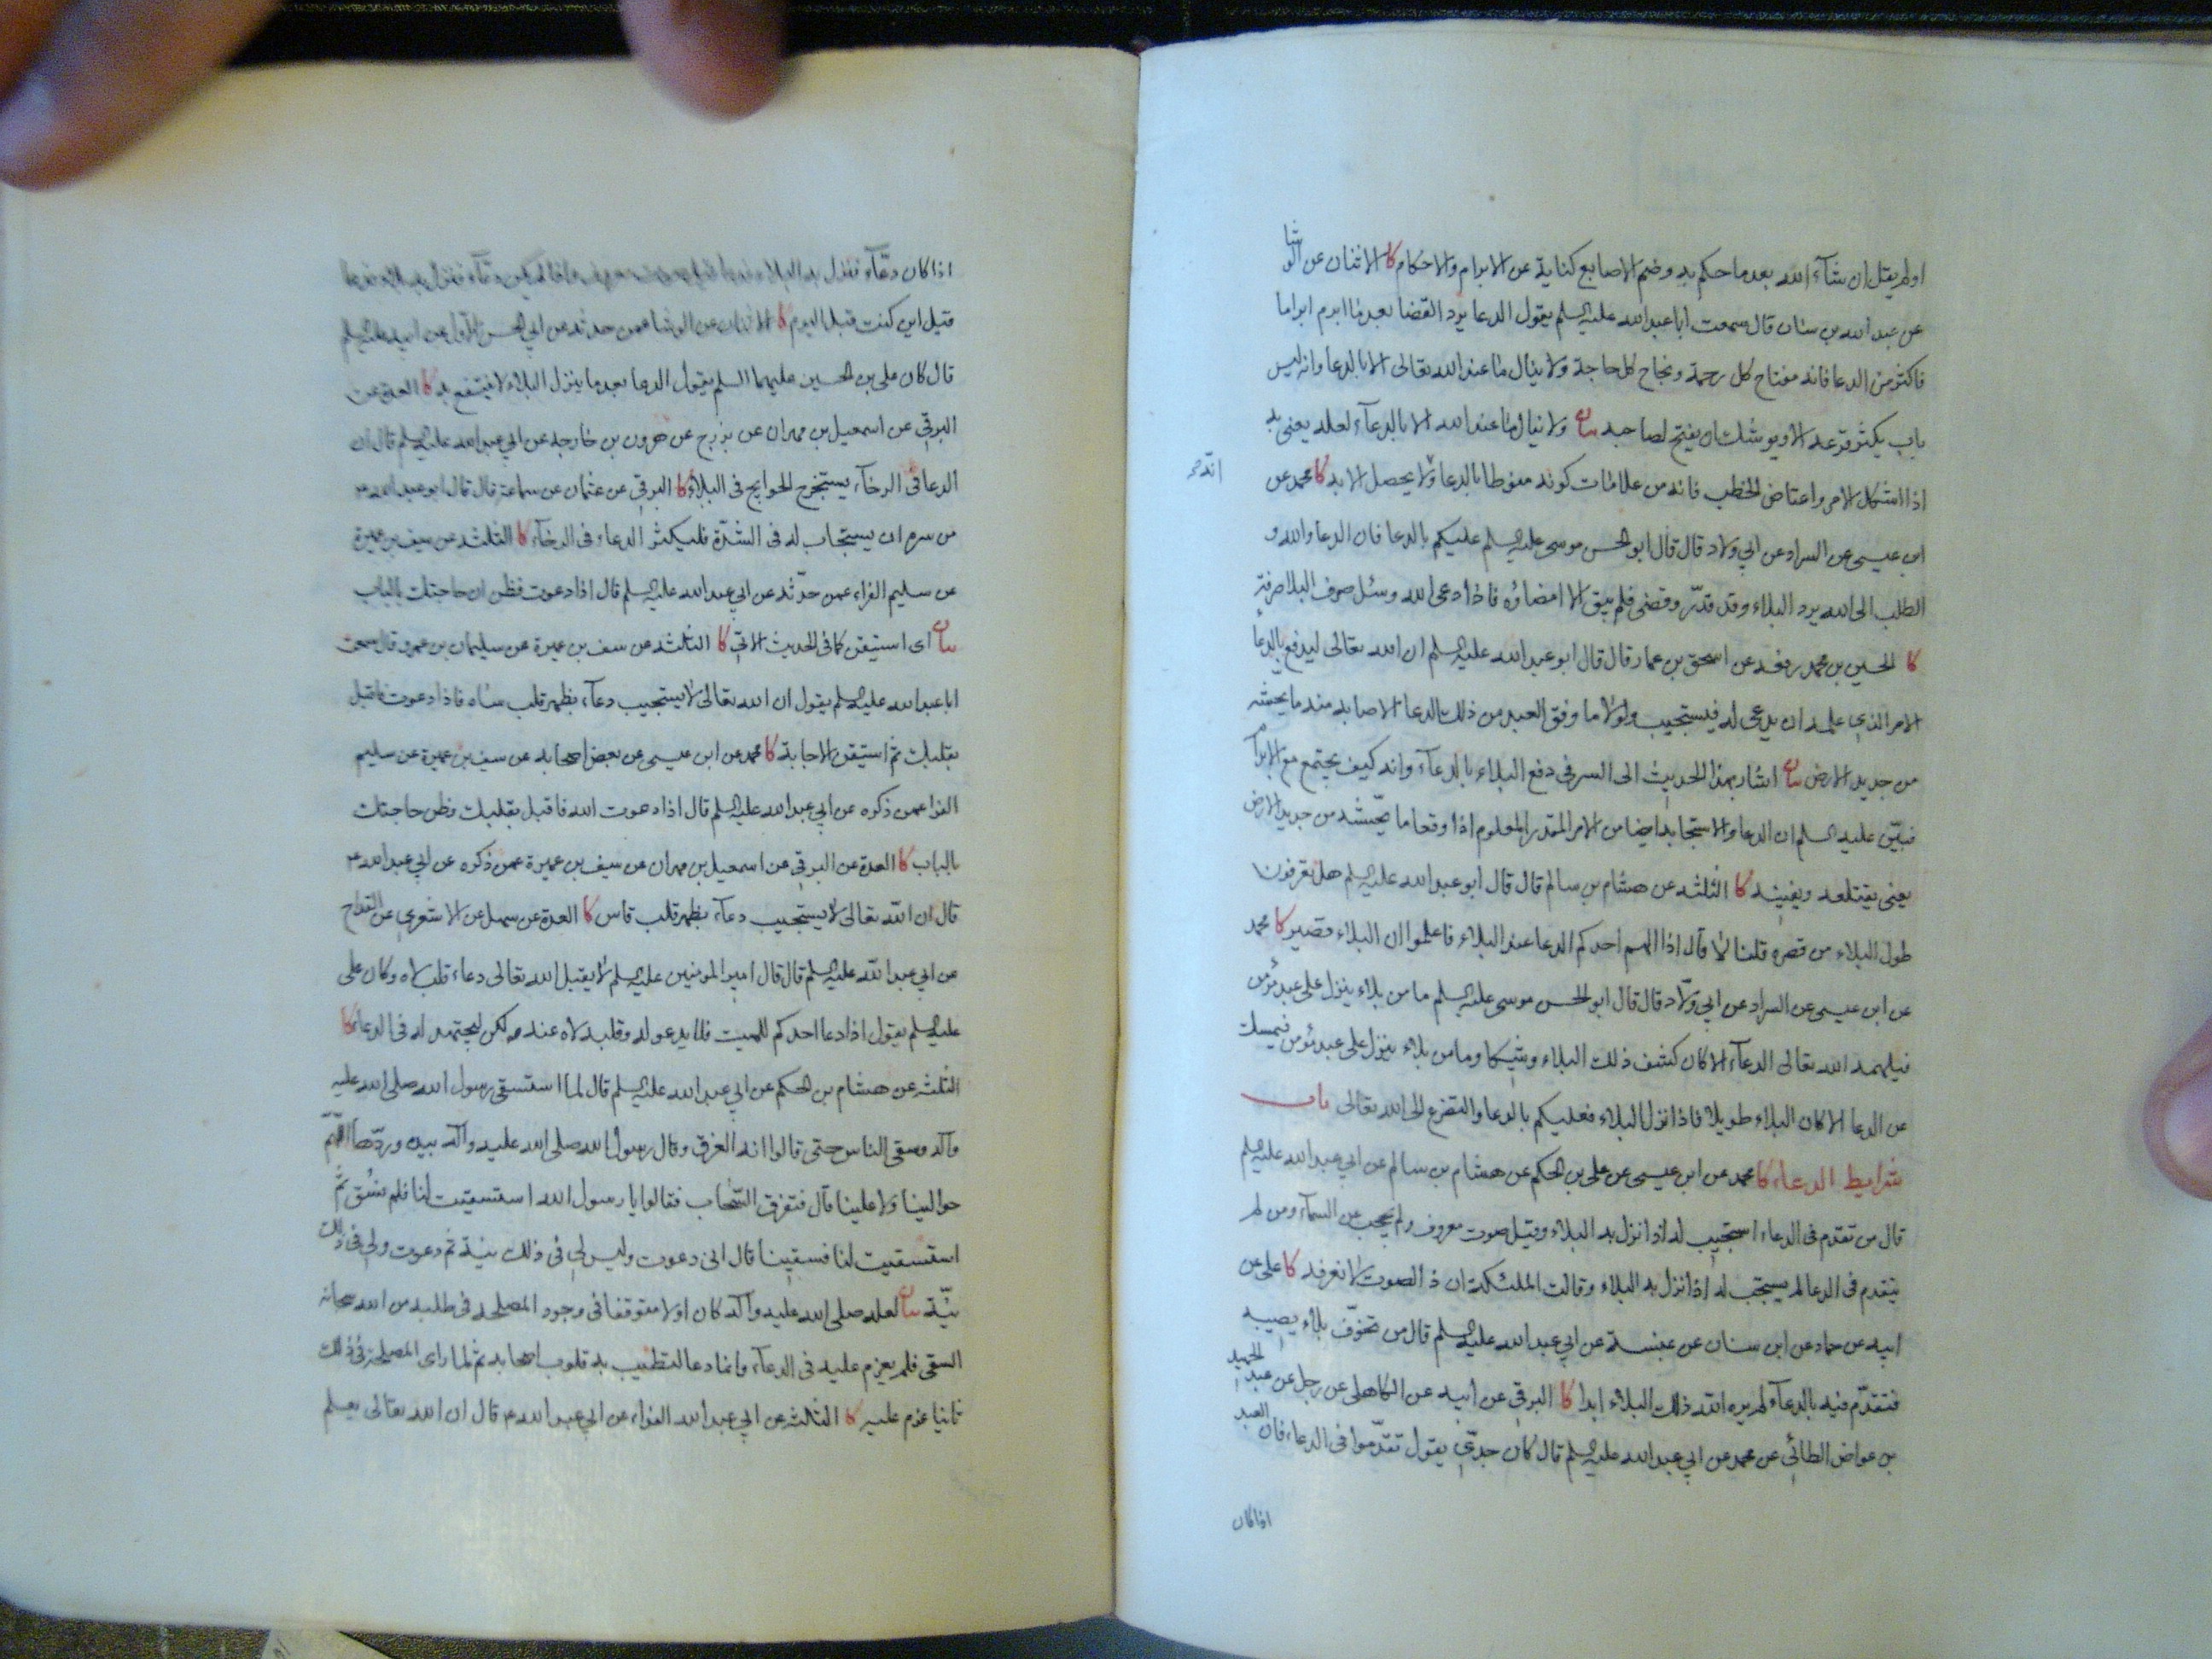 اولم يقل ان شآء الله بعد ما حكم به وضم الاصابع كناية عن الابرام والاحكام كا الاثنان عن الوشا
عن عبد الله بن سنان قال سمعت ابا عبد الله عليه السلم يقول الدعا يرد القضا بعد ما ابرم ابراما
فاكثر من الدعا فانه مفتاح كل رحمة ونجاح كل حاجة ولا ينال ما عند الله تعالى الا بالدعا وانه ليس
باب يكثر قرعه الا ويوشك ان يفتح لصاحبه بيان ولا ينال ما عند الله الا بالدعآء لعله يعنى به
اذا اشكل الامر واعتاض الخطب فانه من علامات كونه منوطا بالدعا ولا يحصل الا به كا محمد عن
ابن عيسى عن السراد عن ابي ولاد قال قال ابو الحسن موسى عليه السلم عليكم بالدعا فان الدعا والله و
الطلب الى الله يرد البلاء وقد قدّر وقضى فلم يبق الا امضاؤه فاذا دعى الله وسئل صرف البلا صرفة
كا الحسين بن محمد رفعه عن اسحق بن عمار قال قال ابو عبد الله عليه السلم ان الله تعالى ليدفع بالدعا
الامر الذي علمه ان يدعى له فيستجيب ولولا ما وفق العبد من ذلك الدعا لاصابه منه ما يجتثه
من جديد الارض بيان اشار بهذا الحديث الى السر فى دفع البلاء بالدعآء وانه كيف يجتمع مع الابرام
فبيّن عليه السلم ان الدعا والاستجابة ايضا من الامر المقدر المعلوم اذا وقعا ما يجتثه من جديد الارض
يعنى يقتلعه ويفنيه كا الثلثة عن هشام بن سالم قال قال ابو عبد الله عليه السلم هل تعرفون
طول البلاء من قصره قلنا لا قال اذا الهم احدكم الدعا عند البلاء فاعلموا ان البلاء قصير كا محمد
عن ابن عيسى عن السراد عن ابي ولّاد قال قال ابو الحسن موسى عليه السلم ما من بلاء ينزل على عبد مؤمن
فيلهمه الله تعالى الدعآء الا كان كشف ذلك البلاء وشيكا وما من بلاء ينزل على عبد مؤمن فيمسك
عن الدعا الا كان البلاء طويلا فاذا نزل البلاء فعليكم بالدعا والتضرع الى الله تعالى باب
شرايط الدعاء كا محمد عن ابن عيسى عن على بن الحكم عن هشام بن سالم عن ابي عبد الله عليه السلم
قال من تقدم فى الدعاء استجيب له اذا نزل به البلاء وقيل صوت معروف ولم يحجب عن السمآء ومن لم
يتقدم فى الدعا لم يستجب له اذا نزل به البلاء وقالت الملئكة ان ذا الصوت لا نعرفه كا على عن
ابيه عن حماد عن ابن سنان عن عنبسة عن ابي عبد الله عليه السلم قال من تخوّف بلاء يصيبه
فتقدّم فيه بالدعآء لم يره الله ذلك البلاء ابدا كا البرقى عن ابيه عن الكاهلى عن رجل عن عبد الحميد
بن عواض الطائي عن محمد عن ابي عبد الله عليه السلم قال كان جدّي يقول تقدّموا فى الدعاء فان العبد
اذا كان
اذا كان دعّآء فنزل به البلاء
قيل اين كنت قبل اليوم كا الاثنان عن الوشا عمن حدثه عن ابي الحسن الاول عن ابيه عليه السلم
قال كان على بن الحسين عليهما السلم يقول الدعا بعد ما ينزل البلاء لا ينتفع به كا العدة عن
البرقي عن اسمعيل بن مهران عن بزرج عن هرون بن خارجه عن ابي عبد الله عليه السلم قال ان
الدعا فى الرخآء يستخرج الحوايج فى البلاء كا البرقي عن عثمان عن سماعة قال قال ابو عبد الله ع
من سره ان يستجاب له فى الشدّة فليكثر الدعاء فى الرخآء كا الثلثة عن سيف بن عميرة
عن سليم الفراء عمن حدّثه عن ابي عبد الله عليه السلم قال اذا دعوت فظن ان حاجتك بالباب
بيان اى استيقن كما فى الحديث الاتى كا الثلثة عن سيف بن عميرة عن سليمان بن عمرو قال سمعت
ابا عبد الله عليه السلم يقول ان الله تعالى لا يستجيب دعآء بظهر قلب ساه فاذا دعوت فاقبل
بقلبك ثم استيقن الاجابة كا محمد عن ابن عيسى عن بعض اصحابه عن سيف بن عميرة عن سليم
الفرا عمن ذكره عن ابي عبد الله عليه السلم قال اذا دعوت الله فاقبل بقلبك وظن حاجتك
بالباب كا العدة عن البرقي عن اسمعيل بن مهران عن سيف بن عميرة عمن ذكره عن ابي عبد الله ع
قال ان الله تعالى لا يستجيب دعآء بظهر قلب قاس كا العدة عن سهل عن الاشعري عن القداح
عن ابي عبد الله عليه السلم قال قال امير المومنين عليه السلم لا يقبل الله تعالى دعاء قلب لاه وكان على
عليه السلم يقول اذا دعا احدكم للميت فلا يدعو له وقلبه لاه عنه ولكن ليجتهد له فى الدعاء كا
الثلثة عن هشام بن الحكم عن ابي عبد الله عليه السلم قال لما استسقى رسول الله صلى الله عليه
وآله وسقى الناس حتى قالوا انه الغرق وقال رسول الله صلى الله عليه وآله بيده وردّها اللهّم
حوالينا ولا علينا قال فتفرق السّحاب فقالوا يا رسول الله استسقيت لنا فلم نسق ثم
استسقيت لنا فسقينا قال انى دعوت وليس لي فى ذلك نية ثم دعوت ولي فى ذلك
نيّة بيان لعله صلى الله عليه وآله كان اولا متوقفا فى وجود المصلحة فى طلبه من الله سبحانه
السقى فلم يعزم عليه فى الدعآء وانما دعا لتطييب به قلوب اصحابه ثم لما راى المصلحة فى ذلك
ثانيا عزم عليه كا الثلثة عن ابي عبد الله الفراء عن ابي عبد الله ع قال ان الله تعالى يعلم